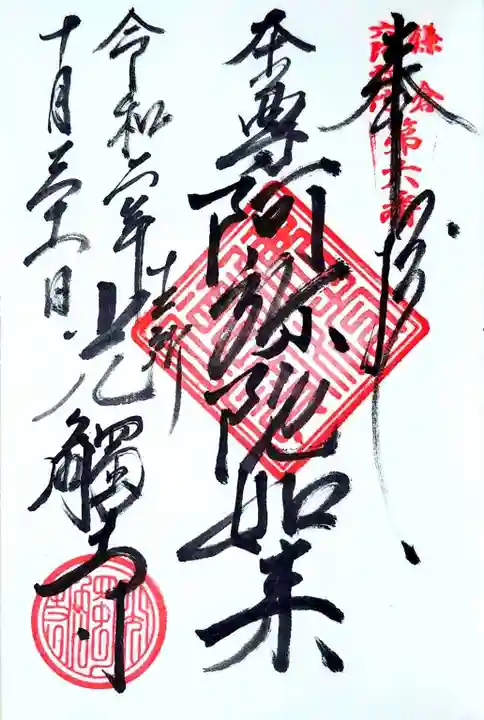 奉拝
鎌倉
第六番
本尊阿弥陀如来
十二所
光觸寺
令和二年
十月三十一日